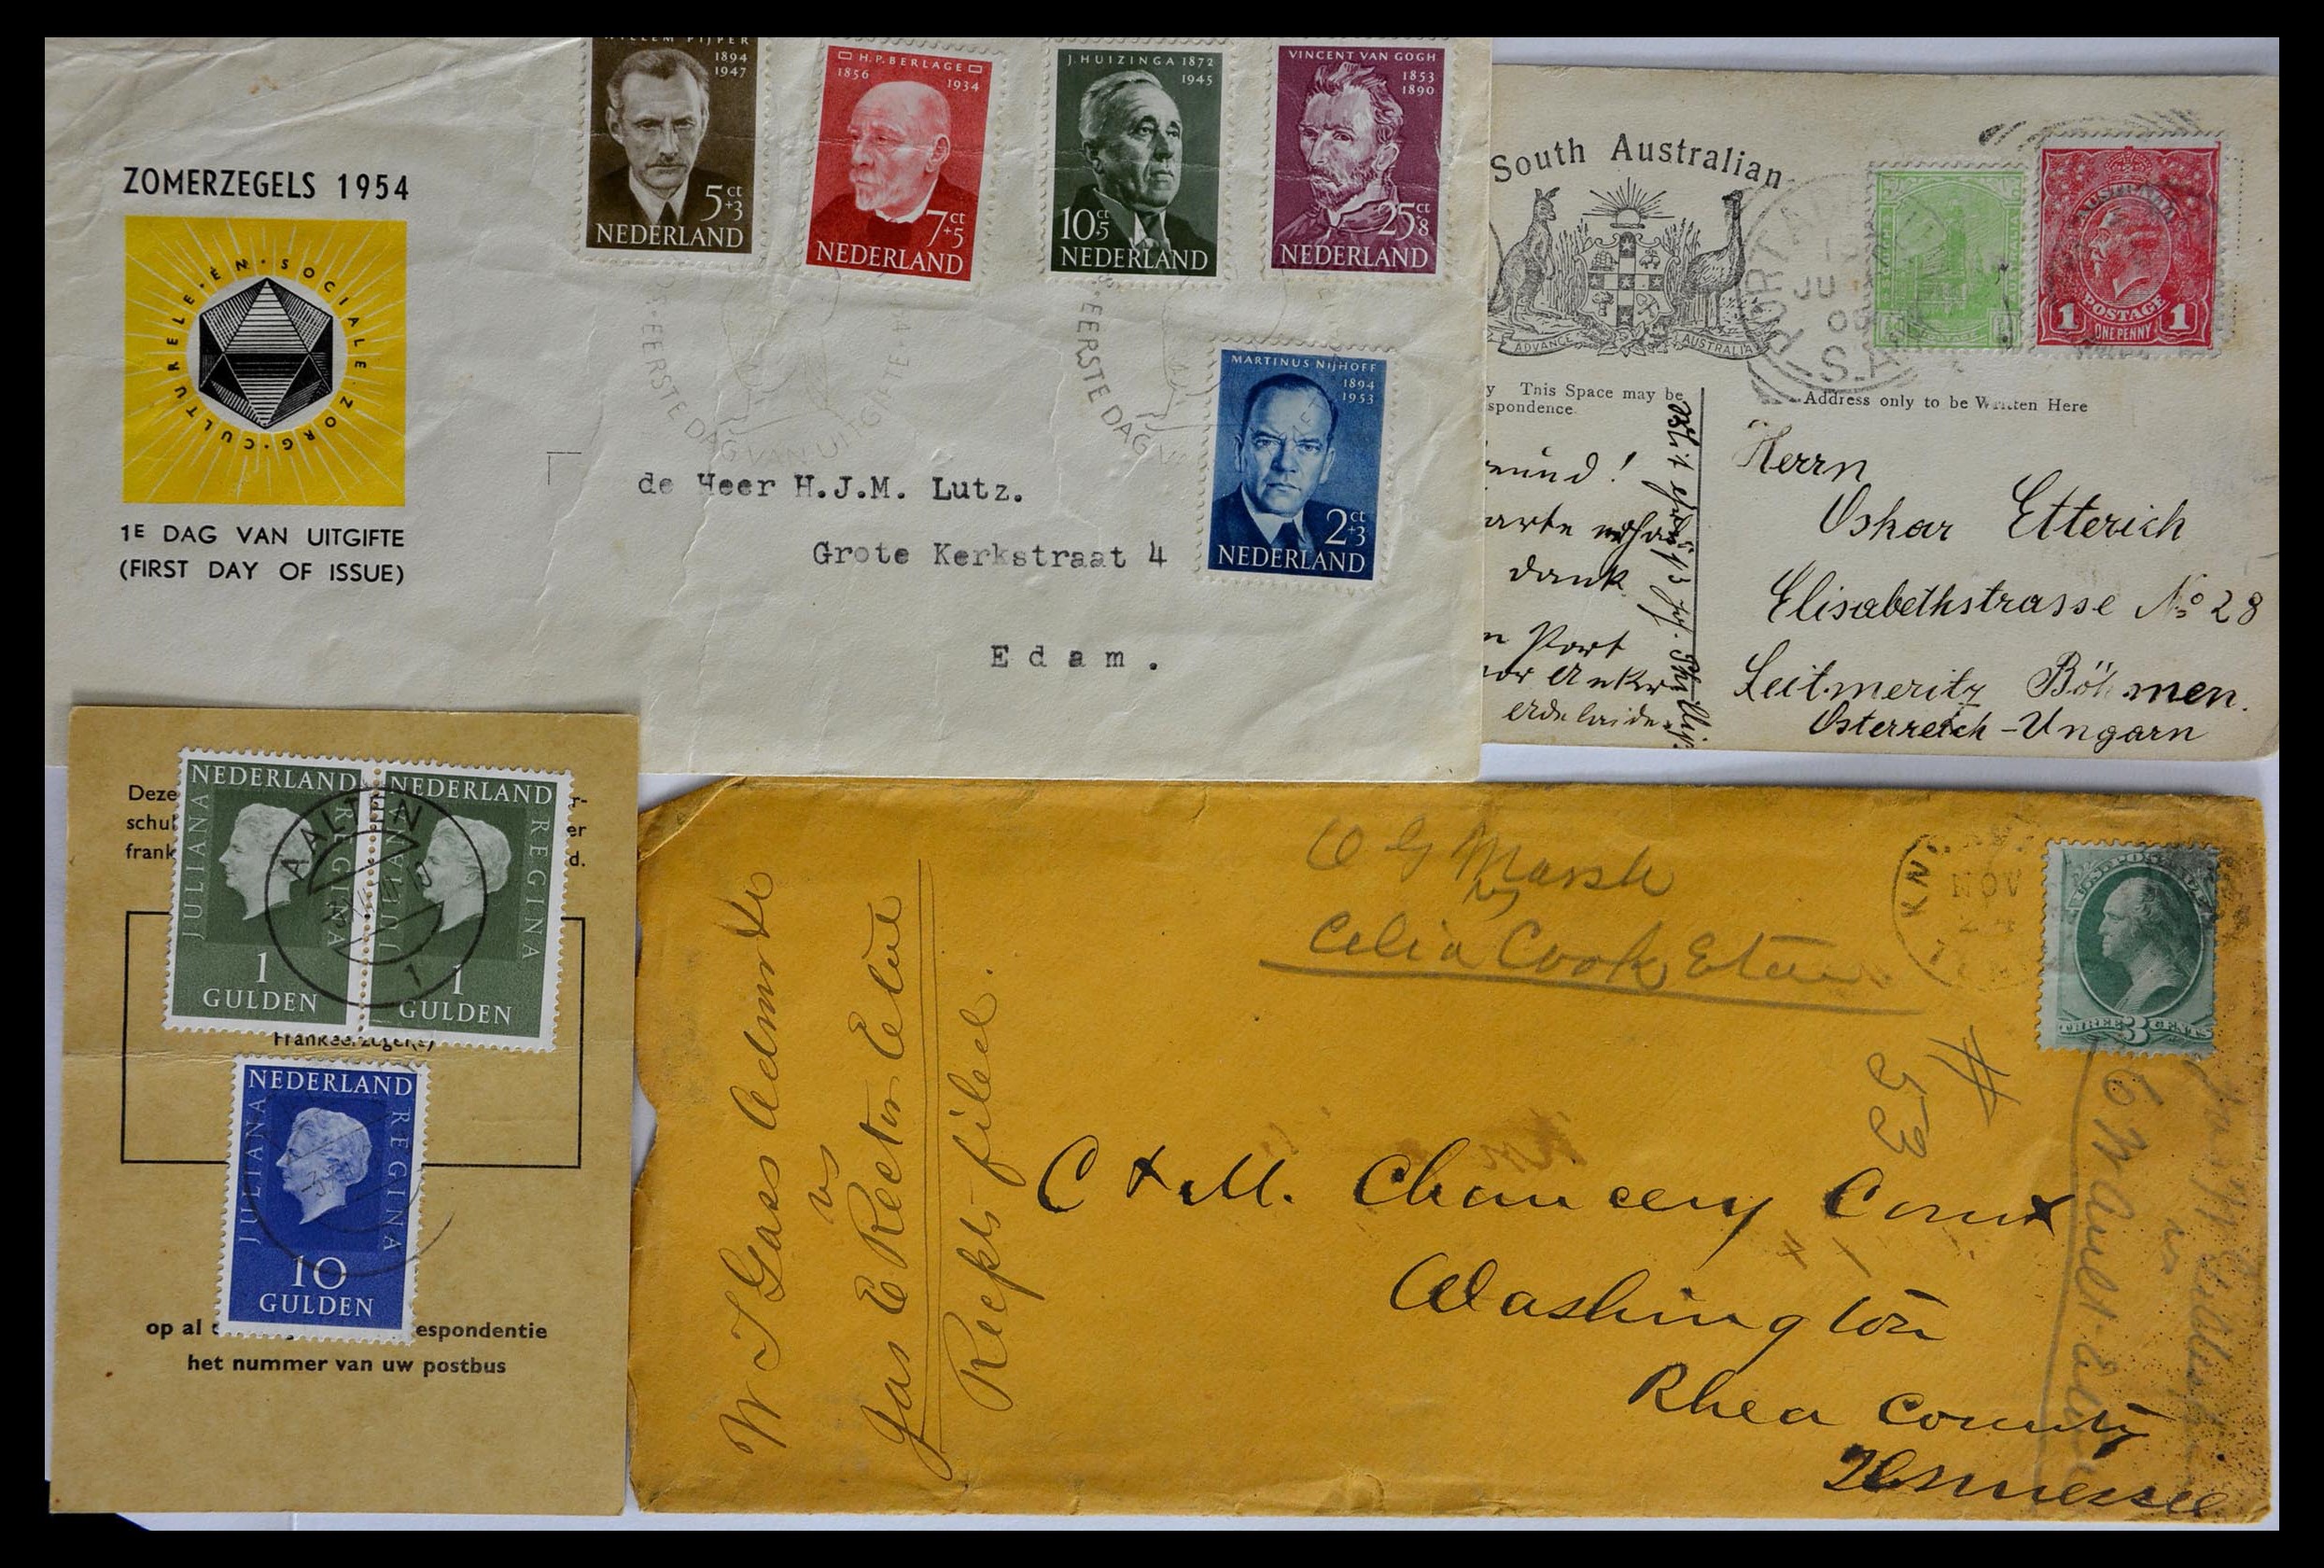 ZOMERZEGELS 1954
CULTURELE·EN·SOCIALE·ZORG·
1E DAG VAN UITGIFTE
(FIRST DAY OF ISSUE)
WILLEM PIJPER
1894
1947
5ct
+3
NEDERLAND
H.P. BERLAGE
1856
1934
7ct
+5
NEDERLAND
J. HUIZINGA 1872
1945
10ct
+5
NEDERLAND
VINCENT VAN GOGH
1853
1890
25ct
+8
NEDERLAND
MARTINUS NIJHOFF
1894
1953
2ct
+3
NEDERLAND
EERSTE DAG VAN UITGIFTE
EERSTE DAG V
de Heer H.J.M. Lutz.
Grote Kerkstraat 4
Edam.
South Australian
ADVANCE AUSTRALIA
PORT A
JU
S.A
AUSTRALIA
1 POSTAGE 1
ONE PENNY
y This Space may be
spondence
Address only to be Written Here
dank
n Port
Herrn
Oskar Etterich
Elisabethstrasse No 28
Leitmeritz Böhmen.
Österreich-Ungarn
Deze
schul
frank
r-
er
d.
NEDERLAND
JULIANA REGINA
1
GULDEN
NEDERLAND
JULIANA REGINA
1
GULDEN
AALTEN
1
Frankeerzegel(s)
NEDERLAND
JULIANA REGINA
10
GULDEN
op al espondentie
het nummer van uw postbus
W J Gass Admr
vs
Jas E Rector
Recpts filed.
O G Marsh
by
Celia Cook
KN
NOV
24
U.S. POSTAGE
THREE 3 CENTS
# 53
C & M. Chancery Court
Washington
Rhea County
Tennessee
vs